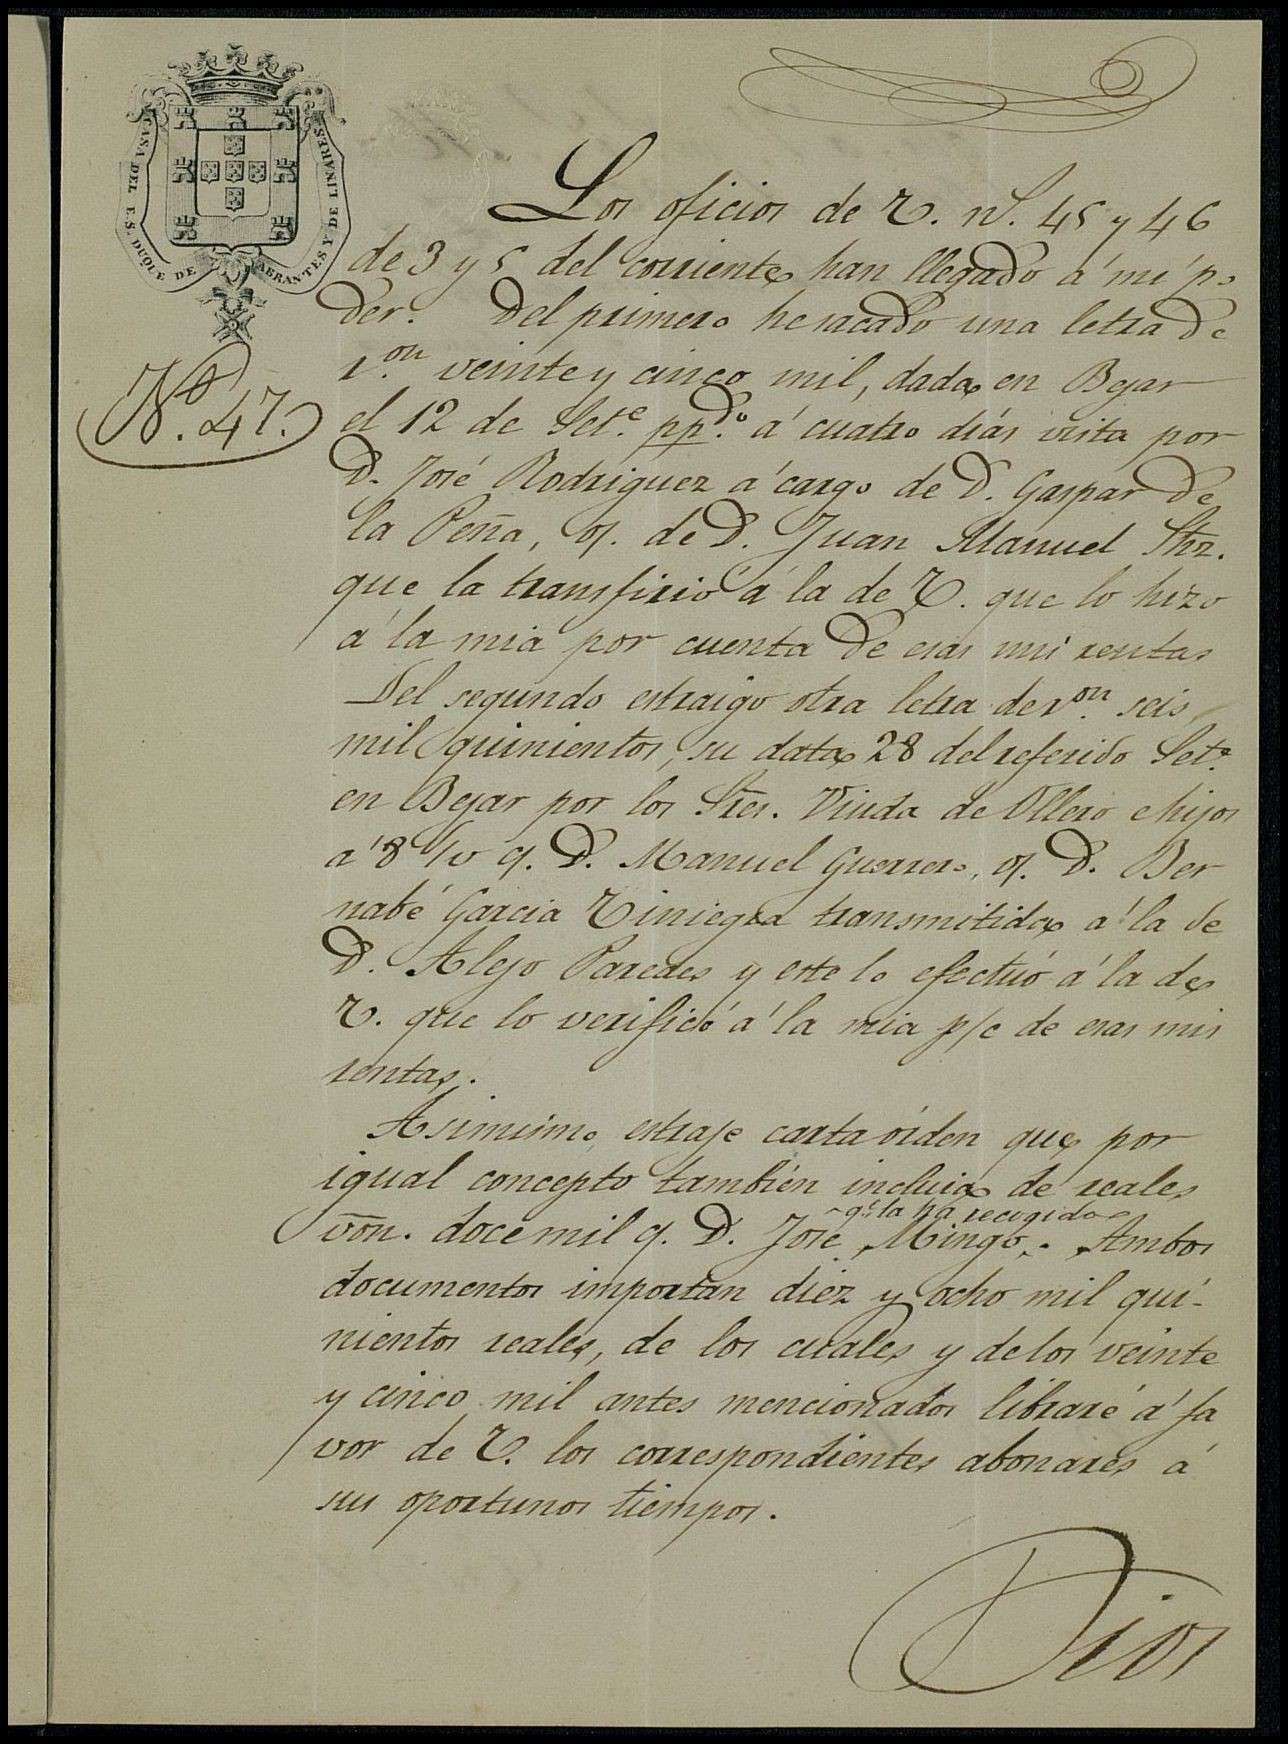 CASA DEL E. S. DUQUE DE ABRANTES Y DE LINARES
Nº. 47.
Los oficios de V. nos. 45 y 46
de 3 y 5 del corriente han llegado á mi po
der. Del primero he sacado una letra de
r.on veinte y cinco mil, dada en Bejar
el 12 de Set.e pp.do á cuatro dias vista por
D. José Rodriguez á cargo de D. Gaspar de
la Peña, o/. de D. Juan Manuel Shz.
que la transfirió á la de V. que lo hizo
á la mia por cuenta de esas mis rentas
Del segundo estraigo otra letra de r.on seis
mil quinientos, su data 28 del referido Set.e
en Bejar por los Sres. Viuda de Ollero e hijos
a 8 d/v c/. D. Manuel Guerrero, o/. D. Ber
nabé Garcia Viniegra transmitida á la de
D. Alejo Paredes y este lo efectuó á la de
V. que lo verificó á la mia p/c de esas mis
rentas.
Asimismo estraje carta órden que por
igual concepto tambien incluia de reales
q.e la ha recogido
vón. doce mil c/. D. José Mingo. Ambos
documentos importan diez y ocho mil qui-
nientos reales, de los cuales y de los veinte
y cinco mil antes mencionados libraré á fa
vor de V. los correspondientes abonarés á
sus oportunos tiempos.
Dios